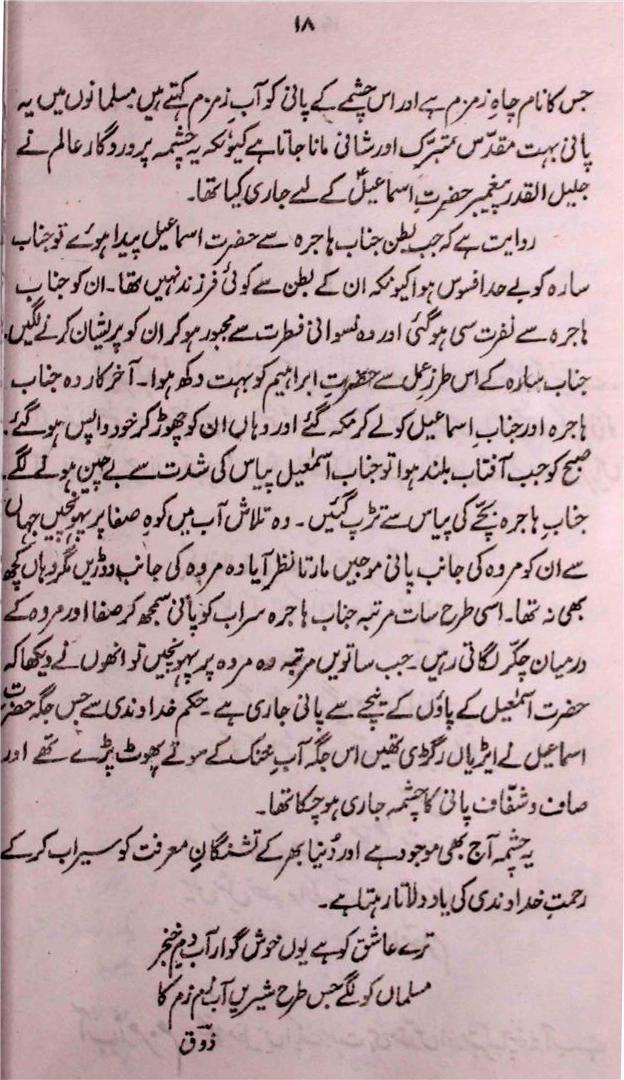 ۱۸
جس کا نام چاہِ زمزم ہے اور اس چشمے کے پانی کو آبِ زمزم کہتے ہیں مسلمانوں میں یہ
پانی بہت مقدّس متبرّک اور شافی مانا جاتا ہے کیونکہ یہ چشمہ پروردگار عالم نے
جلیل القدر پیغمبر حضرتِ اسماعیلؑ کے لیے جاری کیا تھا۔
روایت ہے کہ جب بطن جناب ہاجرہ سے حضرت اسماعیل پیدا ہوئے تو جناب
سارہ کو بے حد افسوس ہوا کیونکہ ان کے بطن سے کوئی فرزند نہیں تھا۔ ان کو جناب
ہاجرہ سے نفرت سی ہوگئی اور وہ نسوانی فطرت سے مجبور ہوکر ان کو پریشان کرنے لگیں
جناب سارہ کے اس طرزِ عمل سے حضرتِ ابراہیم کو بہت دکھ ہوا۔ آخر کار وہ جناب
ہاجرہ اور جنابِ اسماعیل کو لے کر مکہ گئے اور وہاں ان کو چھوڑ کر خود واپس ہوگئے۔
صبح کو جب آفتاب بلند ہوا تو جناب اسمٰعیل پیاس کی شدت سے بے چین ہونے لگے
جنابِ ہاجرہ بچّے کی پیاس سے تڑپ گئیں۔ وہ تلاش آب میں کوہِ صفا پر پہونچیں جہاں
سے ان کو مروہ کی جانب پانی موجیں مارتا نظر آیا وہ مروہ کی جانب دوڑیں مگر وہاں کچھ
بھی نہ تھا۔ اسی طرح سات مرتبہ جناب ہاجرہ سراب کو پانی سمجھ کر صفا اور مروہ کے
درمیان چکّر لگاتی رہیں۔ جب ساتویں مرتبہ وہ مروہ پر پہونچیں تو انھوں نے دیکھا کہ
حضرت اسمٰعیل کے پاؤں کے نیچے سے پانی جاری ہے۔ حکم خداوندی سے جس جگہ حضرت
اسماعیل نے ایڑیاں رگڑی تھیں اس جگہ آبِ خنک کے سوتے پھوٹ پڑے تھے اور
صاف و شفّاف پانی کا چشمہ جاری ہوچکا تھا۔
یہ چشمہ آج بھی موجود ہے اور دُنیا بھر کے تشنگانِ معرفت کو سیراب کرکے
رحمتِ خداوندی کی یاد دلاتا رہتا ہے۔
ترے عاشق کو ہے یوں خوش گوار آبِ دمِ خنجر
مسلماں کو لگے جس طرح شیریں آب زمزم کا
ذوق